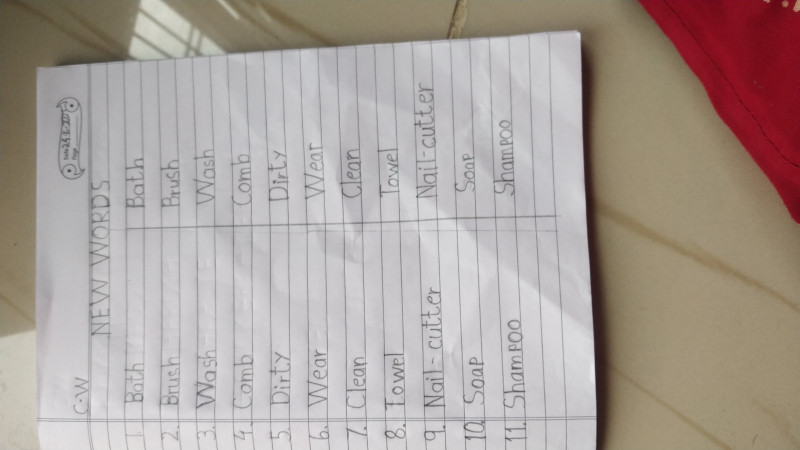 C.W
NEW WORDS
1. Bath Bath
2. Brush Brush
3. Wash Wash
4. Comb Comb
5. Dirty Dirty
6. Wear Wear
7. Clean Clean
8. Towel Towel
9. Nail-cutter Nail-cutter
10. Soap Soap
11. Shampoo Shampoo